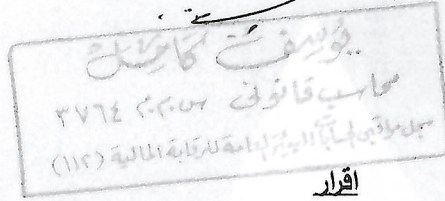 يوسف كامل
محاسب قانونى س.م.م ٣٧٦٤
سجل مراقبى الحسابات الهيئة العامة للرقابة المالية (١١٢)
اقرار